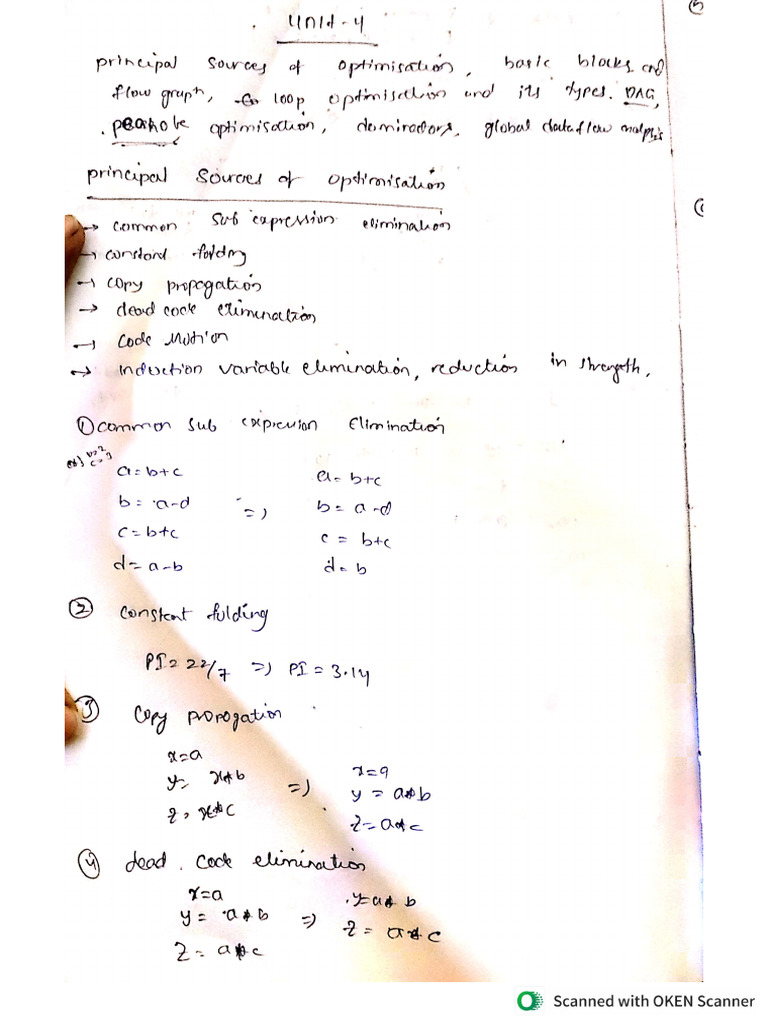 Unit-4
principal sources of optimisation, basic blocks and
flow graph, loop optimisation and its types. DAG,
optimisation, dominators, global dataflow
principal sources of optimisation
→ common sub expression elimination
→ constand folding
→ copy propogation
→ dead code elimination
→ Code Motion
→ induction variable elimination, reduction in strength.
① common sub expression Elimination
a=b+c a=b+c
b=a-d => b=a-d
c=b+c c=b+c
d=a-b d=b
② constent folding
PI=22/7 => PI=3.14
③ copy propogation
x=a x=a
y=x*b => y=a*b
z=x*c z=a*c
④ dead code elimination
x=a y=a*b
y=a*b => z=a*c
z=a*c
Scanned with OKEN Scanner